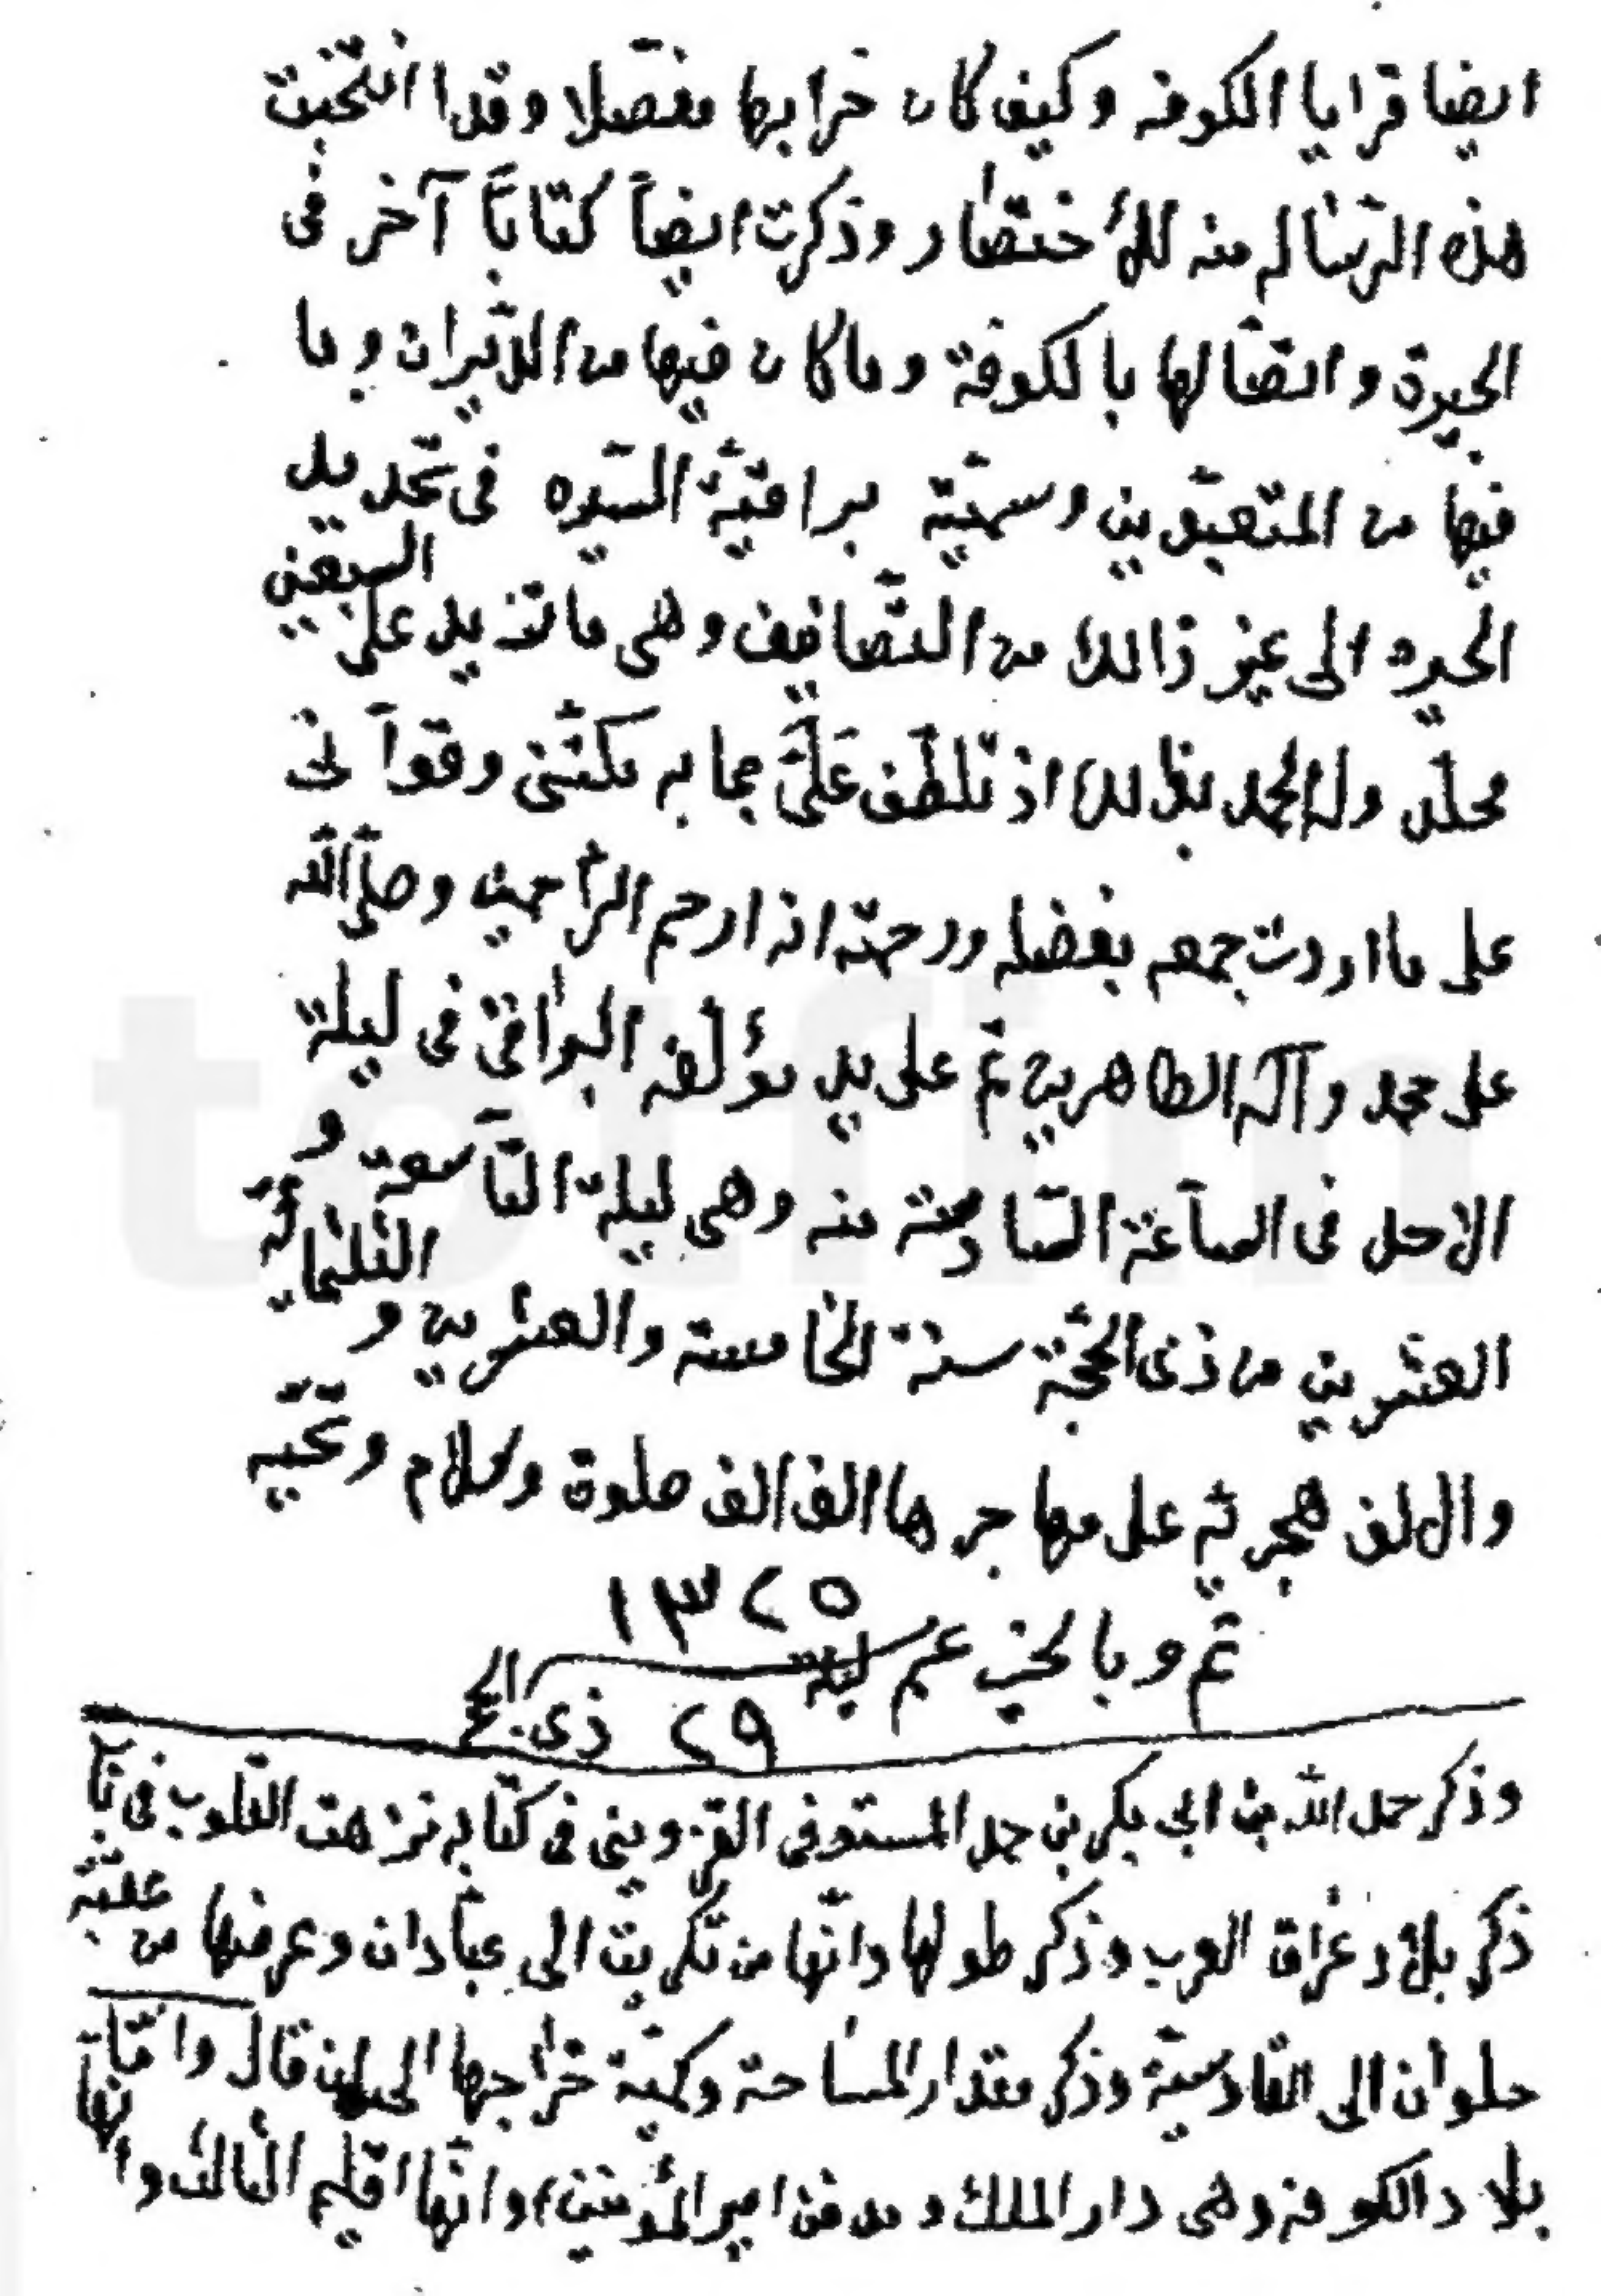 ايضا قرايا الكوفه وكيف كان خرابها مفصلا وقدا انتخبت
هذه الرّسٰاله منه للأختصٰار وذكرت ايضاً كتاباً آخر فى
الحيرة واتصالها بالكوفة وما كان فيها من الاديران وما
فيها من المتعبّدين وسميّته براقيّة السّيره فى تحديد
الحيره الى غير ذالك من التّصانيف وهى ما تزيد على السبعين
مجلّد وله الحمد بذالك اذ تلطّف عَلَيَّ بما به مكنّنى وقوّانى
على ما اردت جمعه بفضله ورحمته انه ارحم الرّاحمين وصلّى الله
على محمد وآله الطاهرين تم على يد مؤلّفه البراقى فى ليلة
الاحد فى الساعة السّادسة منه وهى ليلة التّاسعة و
العشرين من ذى الحّجة سنة الخامسة والعشرين و الثلثمائة
والالف هجريّه على مهاجرها الف الف صلوة وسلام وتحيّه
١٣٢٥
تم وبالخير عم ليلة
٢٩ ذى الحج
وذكر حمد الله بن ابى بكر بن حمد المستوفى القزوينى فى كتابه نزهت القلوب فى
ذكر بلاد عراق العرب وذكر طولها وانّها من تكريت الى عبّادان وعرضها من عقبة
حلوان الى القادسيّة وذكر مقدار المساحة وكميّة خراجها الى ان قال وامّا
بلاد الكوفه وهى دار الملك ومدفن امير المؤمنين وانّها اقليم الثالث وانّها